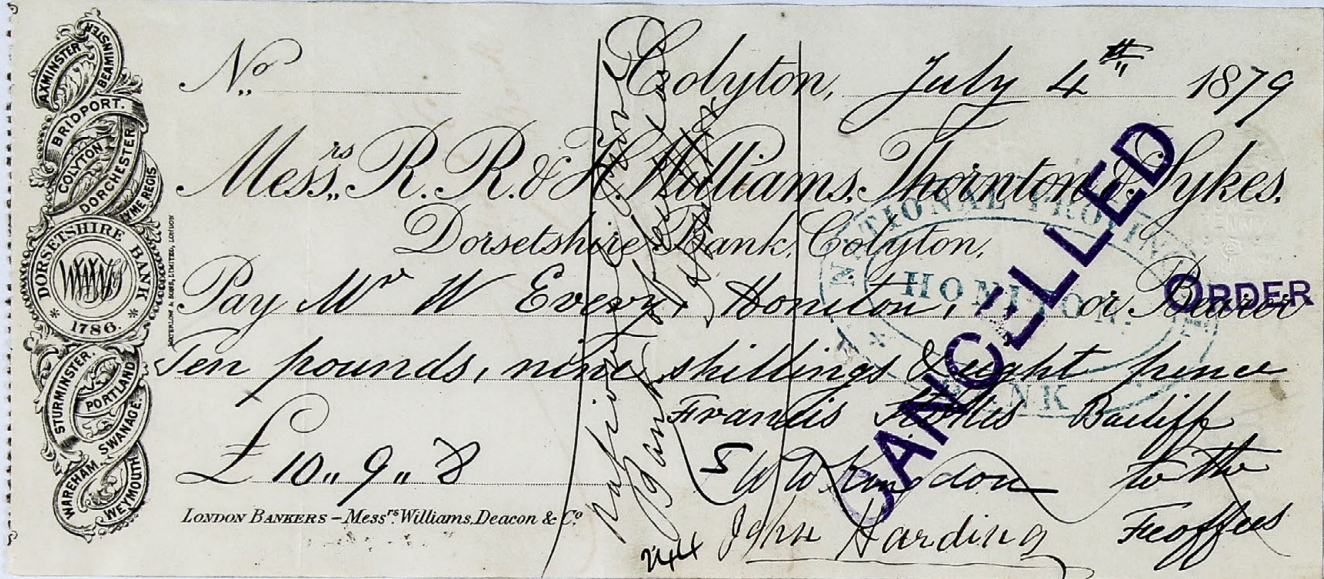 AXMINSTER
BEAMINSTER
BRIDPORT.
COLYTON
DORCHESTER
LYME REGIS
DORSETSHIRE BANK
1786.
STURMINSTER.
PORTLAND
SWANAGE.
WAREHAM
WEYMOUTH
WATERLOW & SONS, LIMITED, LONDON
No. Colyton, July 4th 1879
Messrs. R. R. & H. Williams, Thornton & Sykes.
Dorsetshire Bank, Colyton,
Pay Mr W Every, Honiton, or Bearer
ORDER
Ten pounds, nine shillings & eight pence
Francis Bailiff
£ 10 ,, 9 ,, 8 to the
John Harding Feoffees
LONDON BANKERS – Messrs. Williams, Deacon & Co.
244
CANCELLED
NATIONAL PROVINCIAL
HONITON.
BANK
National
Bank of
Honiton